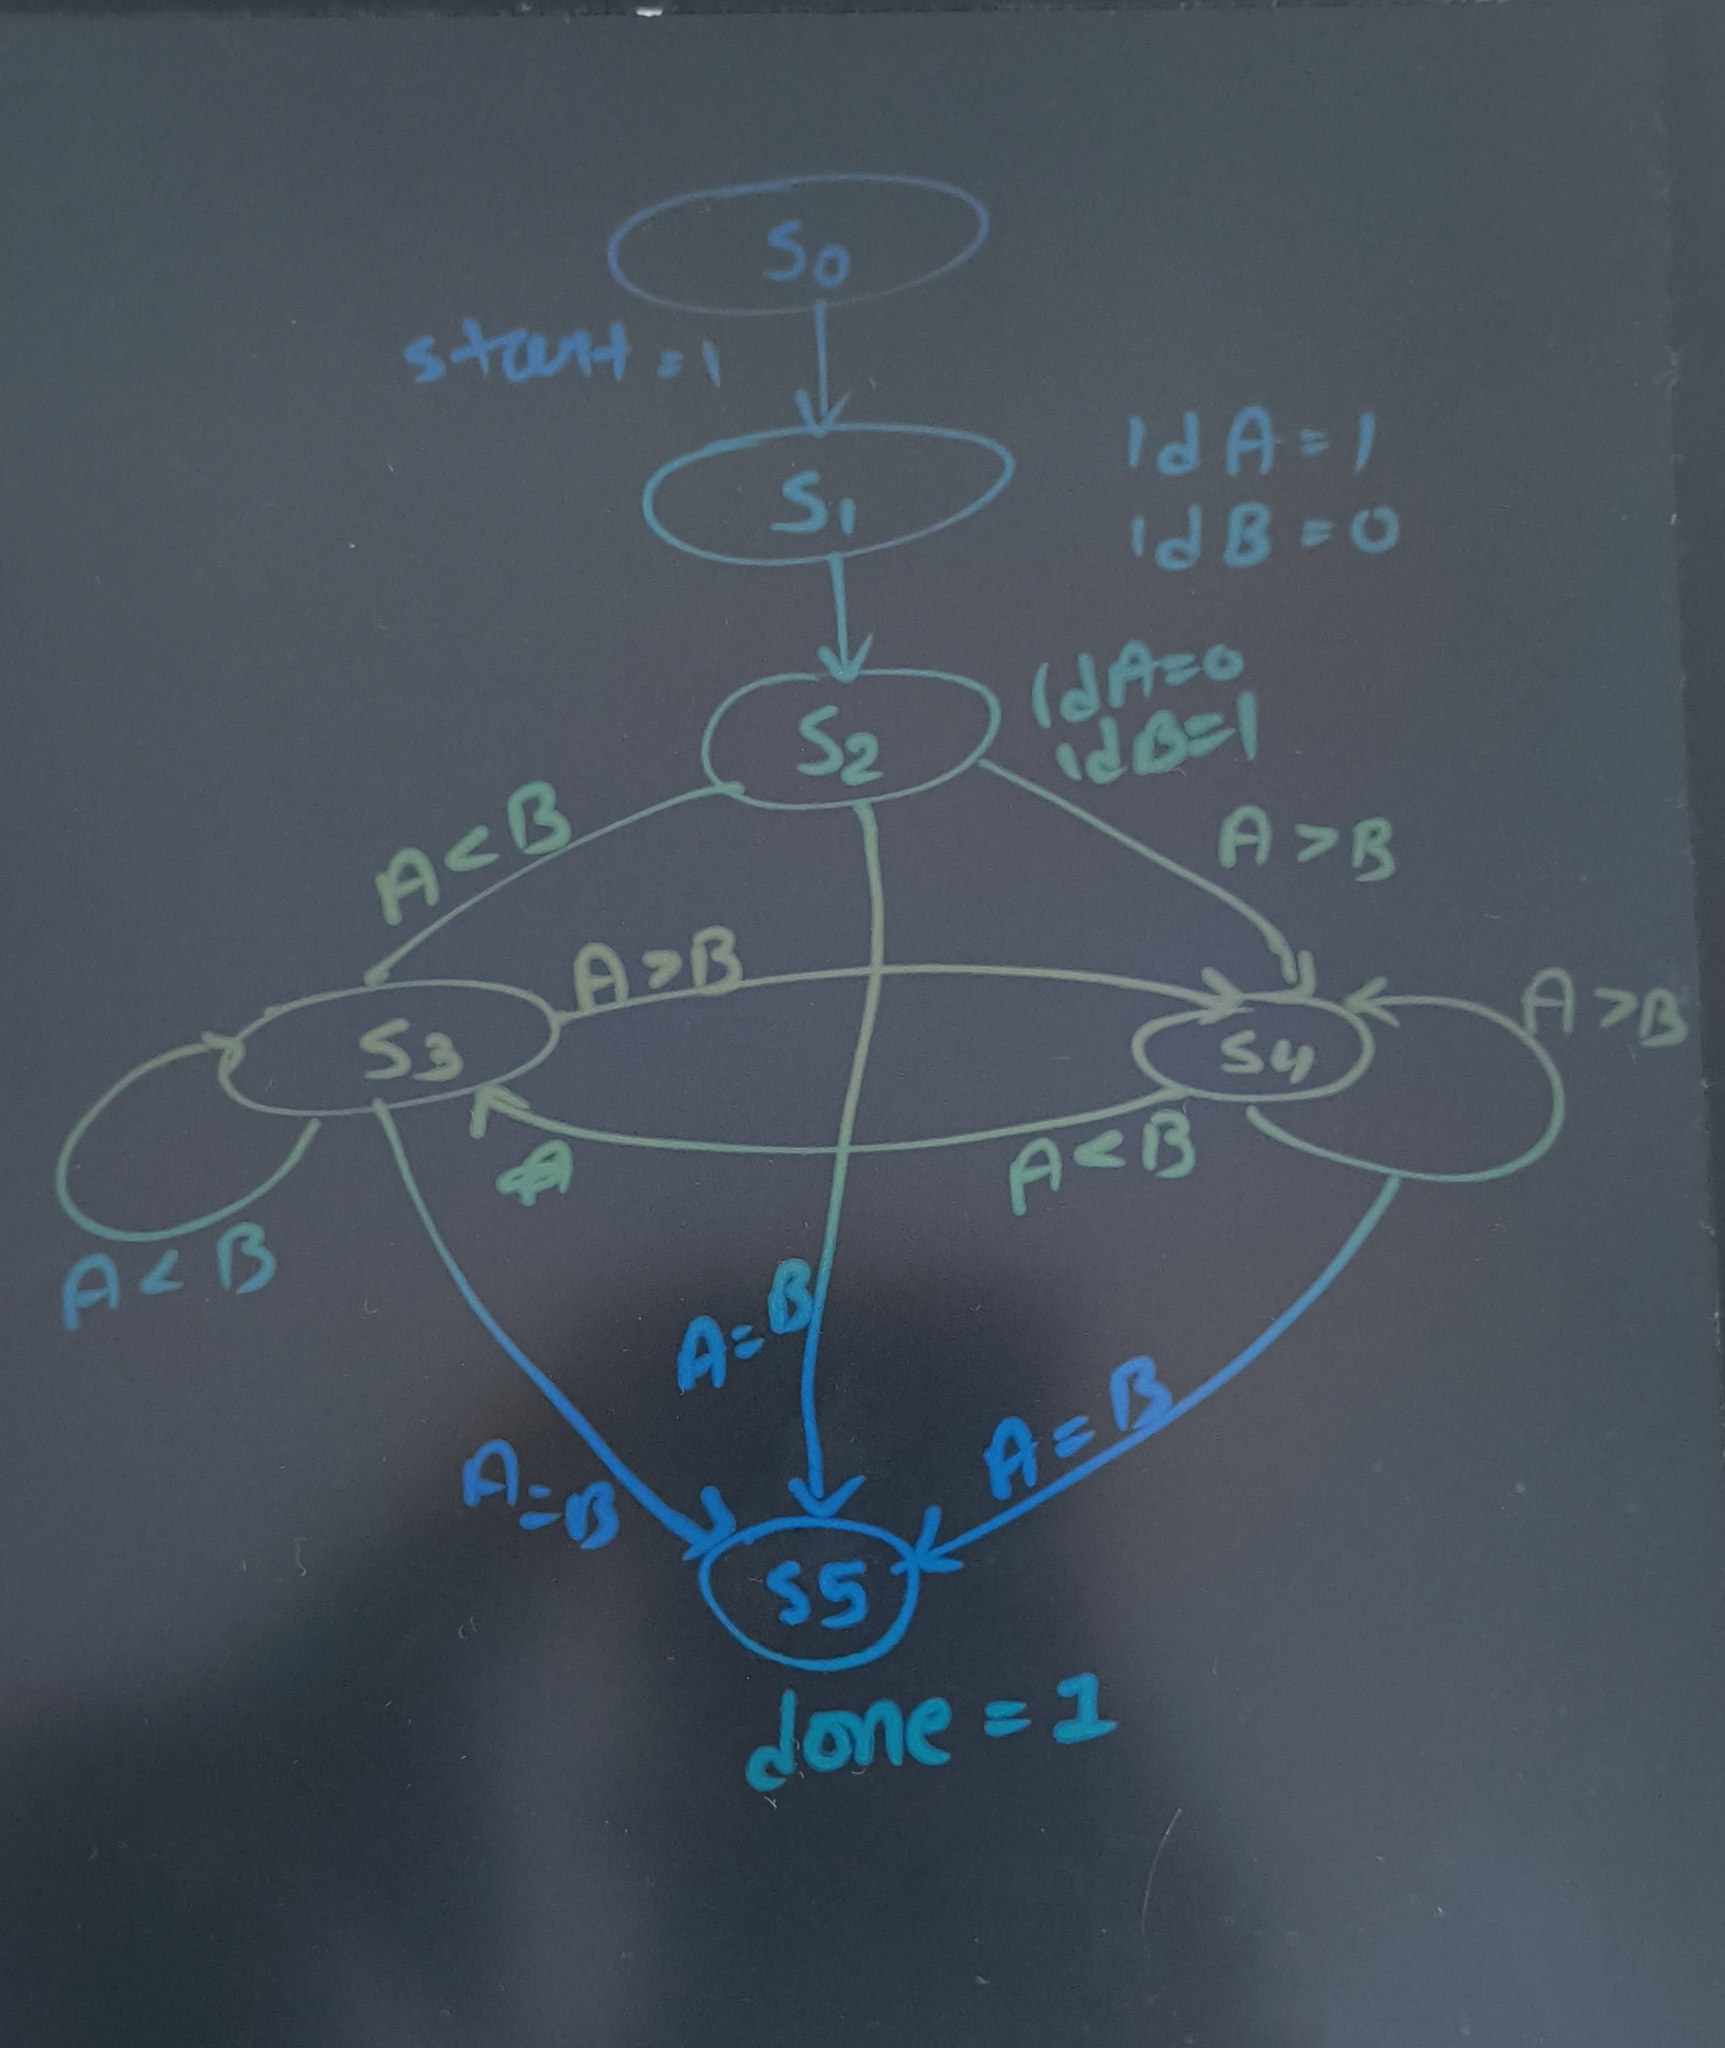 S0
start = 1
S1
ldA = 1
ldB = 0
S2
ldA=0
ldB=1
A < B
A > B
A > B
S3
S4
A > B
A < B
A < B
A=B
A=B
A=B
S5
done = 1